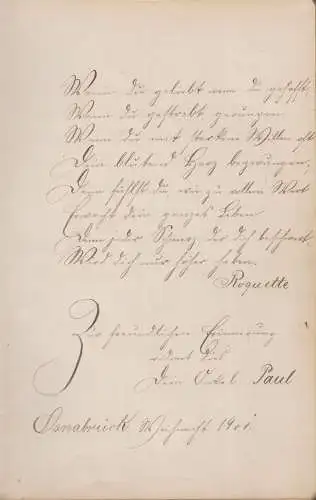 Wenn du geliebt wenn du gehofft,
Wenn du gestrebt gerungen
Wenn du mit starkem Willen oft
Dein blutend Herz bezwungen,
Dann fühlst du wie zu allem
Erwacht dein ganzes Leben
Denn jeder Schmerz, der dich beschwert
Wird dich nur höher heben.
Roquette
Zur freundlichen Erinnerung
widmet dies
Dein Onkel Paul
Osnabrück Weihnacht 1901.